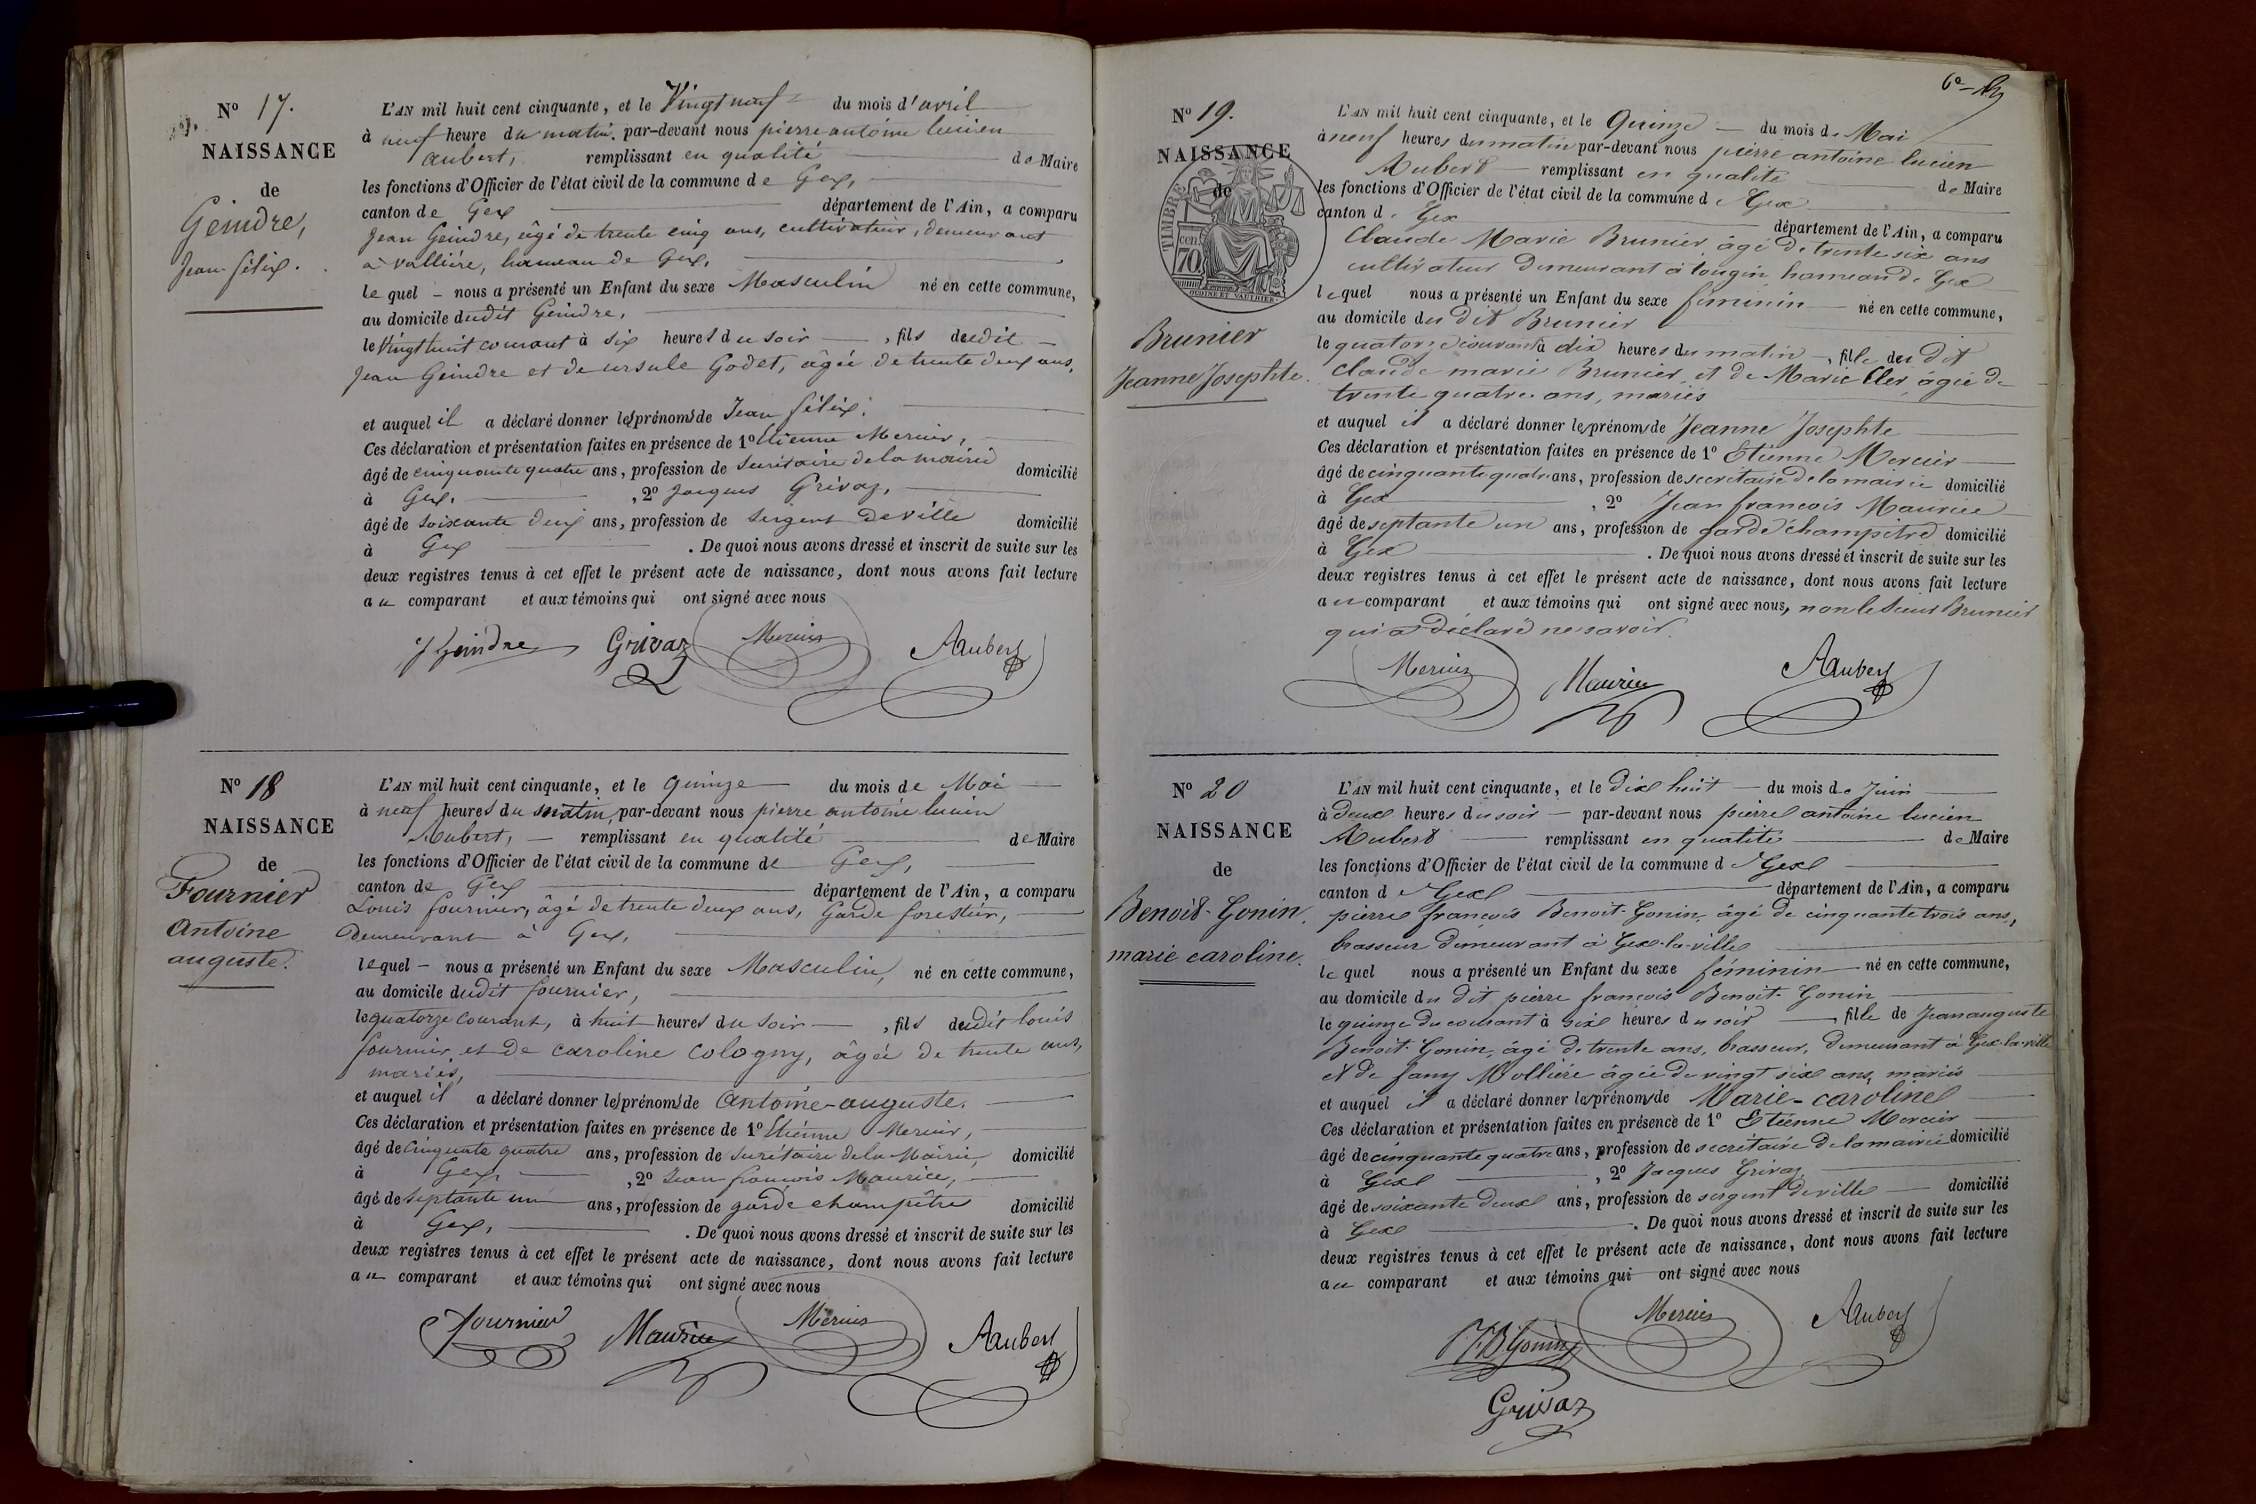 Nº 17.
NAISSANCE
de
Geindre,
Jean-félix.
L'AN mil huit cent cinquante, et le Vingt neuf du mois d'avril
à neuf heure du matin, par-devant nous pierre antoine lucien
Aubert, remplissant en qualité de Maire
les fonctions d'Officier de l'état civil de la commune de Gex,
canton de Gex département de l'Ain, a comparu
Jean Geindre, âgé de trente cinq ans, cultivateur, demeurant
à vallière, hameau de Gex,
lequel nous a présenté un Enfant du sexe Masculin né en cette commune,
au domicile dudit Geindre,
le Vingt huit courant à six heures du soir, fils dudit
Jean Geindre et de ursule Godet, âgée de trente deux ans,
et auquel il a déclaré donner les prénoms de Jean félix.
Ces déclaration et présentation faites en présence de 1º Etienne Mercier,
âgé de cinquante quatre ans, profession de secrétaire de la mairie domicilié
à Gex. , 2º Jacques Grivaz,
âgé de soixante deux ans, profession de sergent de ville domicilié
à Gex . De quoi nous avons dressé et inscrit de suite sur les
deux registres tenus à cet effet le présent acte de naissance, dont nous avons fait lecture
au comparant et aux témoins qui ont signé avec nous
J Geindre Grivaz Mercier Aubert
Nº 18
NAISSANCE
de
Fournier
Antoine
auguste.
L'AN mil huit cent cinquante, et le quinze du mois de Mai
à neuf heures du matin, par-devant nous pierre antoine lucien
Aubert, remplissant en qualité de Maire
les fonctions d'Officier de l'état civil de la commune de Gex,
canton de Gex département de l'Ain, a comparu
Louis fournier, âgé de trente deux ans, Garde forestier,
Demeurant à Gex,
lequel nous a présenté un Enfant du sexe Masculin, né en cette commune,
au domicile dudit fournier,
le quatorze courant, à huit heures du soir , fils dudit louis
fournier et De caroline cologny, âgée de trente ans,
mariés,
et auquel il a déclaré donner les prénoms de Antoine-auguste.
Ces déclaration et présentation faites en présence de 1º Etienne Mercier,
âgé de Cinquate quatre ans, profession de secrétaire de la Mairie, domicilié
à Gex, , 2º Jean françois Maurice,
âgé de septante un ans, profession de garde champêtre domicilié
à Gex, . De quoi nous avons dressé et inscrit de suite sur les
deux registres tenus à cet effet le présent acte de naissance, dont nous avons fait lecture
au comparant et aux témoins qui ont signé avec nous
Fournier Maurice Mercier Aubert
6e
Nº 19.
NAISSANCE
de
TIMBRE
cen. 70
OUDINE ET VAUTHIER
Brunier
Jeanne Josephte.
L'AN mil huit cent cinquante, et le Quinze du mois de Mai
à neuf heures du matin par-devant nous pierre antoine lucien
Aubert remplissant en qualité de Maire
les fonctions d'Officier de l'état civil de la commune de Gex
canton de Gex département de l'Ain, a comparu
Claude Marie Brunier âgé de trente six ans
cultivateur demeurant à tougin hameau de Gex
lequel nous a présenté un Enfant du sexe féminin né en cette commune,
au domicile du dit Brunier
le quatorze courant à dix heures du matin, fille du dit
Claude marie Brunier et de Marie Cler, âgée de
trente quatre ans, mariés
et auquel il a déclaré donner les prénoms de Jeanne Josephte
Ces déclaration et présentation faites en présence de 1º Etienne Mercier
âgé de cinquante quatre ans, profession de secrétaire de la mairie domicilié
à Gex , 2º Jean françois Maurice
âgé de septante un ans, profession de garde champêtre domicilié
à Gex . De quoi nous avons dressé et inscrit de suite sur les
deux registres tenus à cet effet le présent acte de naissance, dont nous avons fait lecture
au comparant et aux témoins qui ont signé avec nous, non le sieur Brunier
qui a déclaré ne savoir.
Mercier Maurice Aubert
Nº 20
NAISSANCE
de
Benoit-Gonin.
marie caroline.
L'AN mil huit cent cinquante, et le dix huit du mois de Juin
à deux heures du soir par-devant nous pierre antoine lucien
Aubert remplissant en qualité de Maire
les fonctions d'Officier de l'état civil de la commune de Gex
canton de Gex département de l'Ain, a comparu
pierre françois Benoit-Gonin, âgé de cinquante trois ans,
brasseur demeurant à Gex-la-ville
lequel nous a présenté un Enfant du sexe féminin né en cette commune,
au domicile du dit pierre françois Benoit-Gonin
le quinze du courant à six heures du soir , fille de Jean auguste
Benoit-Gonin, âgé de trente ans, brasseur, demeurant à Gex-la-ville
et de fany Mollière âgée de vingt six ans, mariés
et auquel il a déclaré donner les prénoms de Marie-caroline
Ces déclaration et présentation faites en présence de 1º Etienne Mercier
âgé de cinquante quatre ans, profession de secrétaire de la mairie domicilié
à Gex , 2º Jacques Grivaz
âgé de soixante deux ans, profession de sergent de ville domicilié
à Gex . De quoi nous avons dressé et inscrit de suite sur les
deux registres tenus à cet effet le présent acte de naissance, dont nous avons fait lecture
au comparant et aux témoins qui ont signé avec nous
P.F.B. Gonin Mercier Aubert
Grivaz